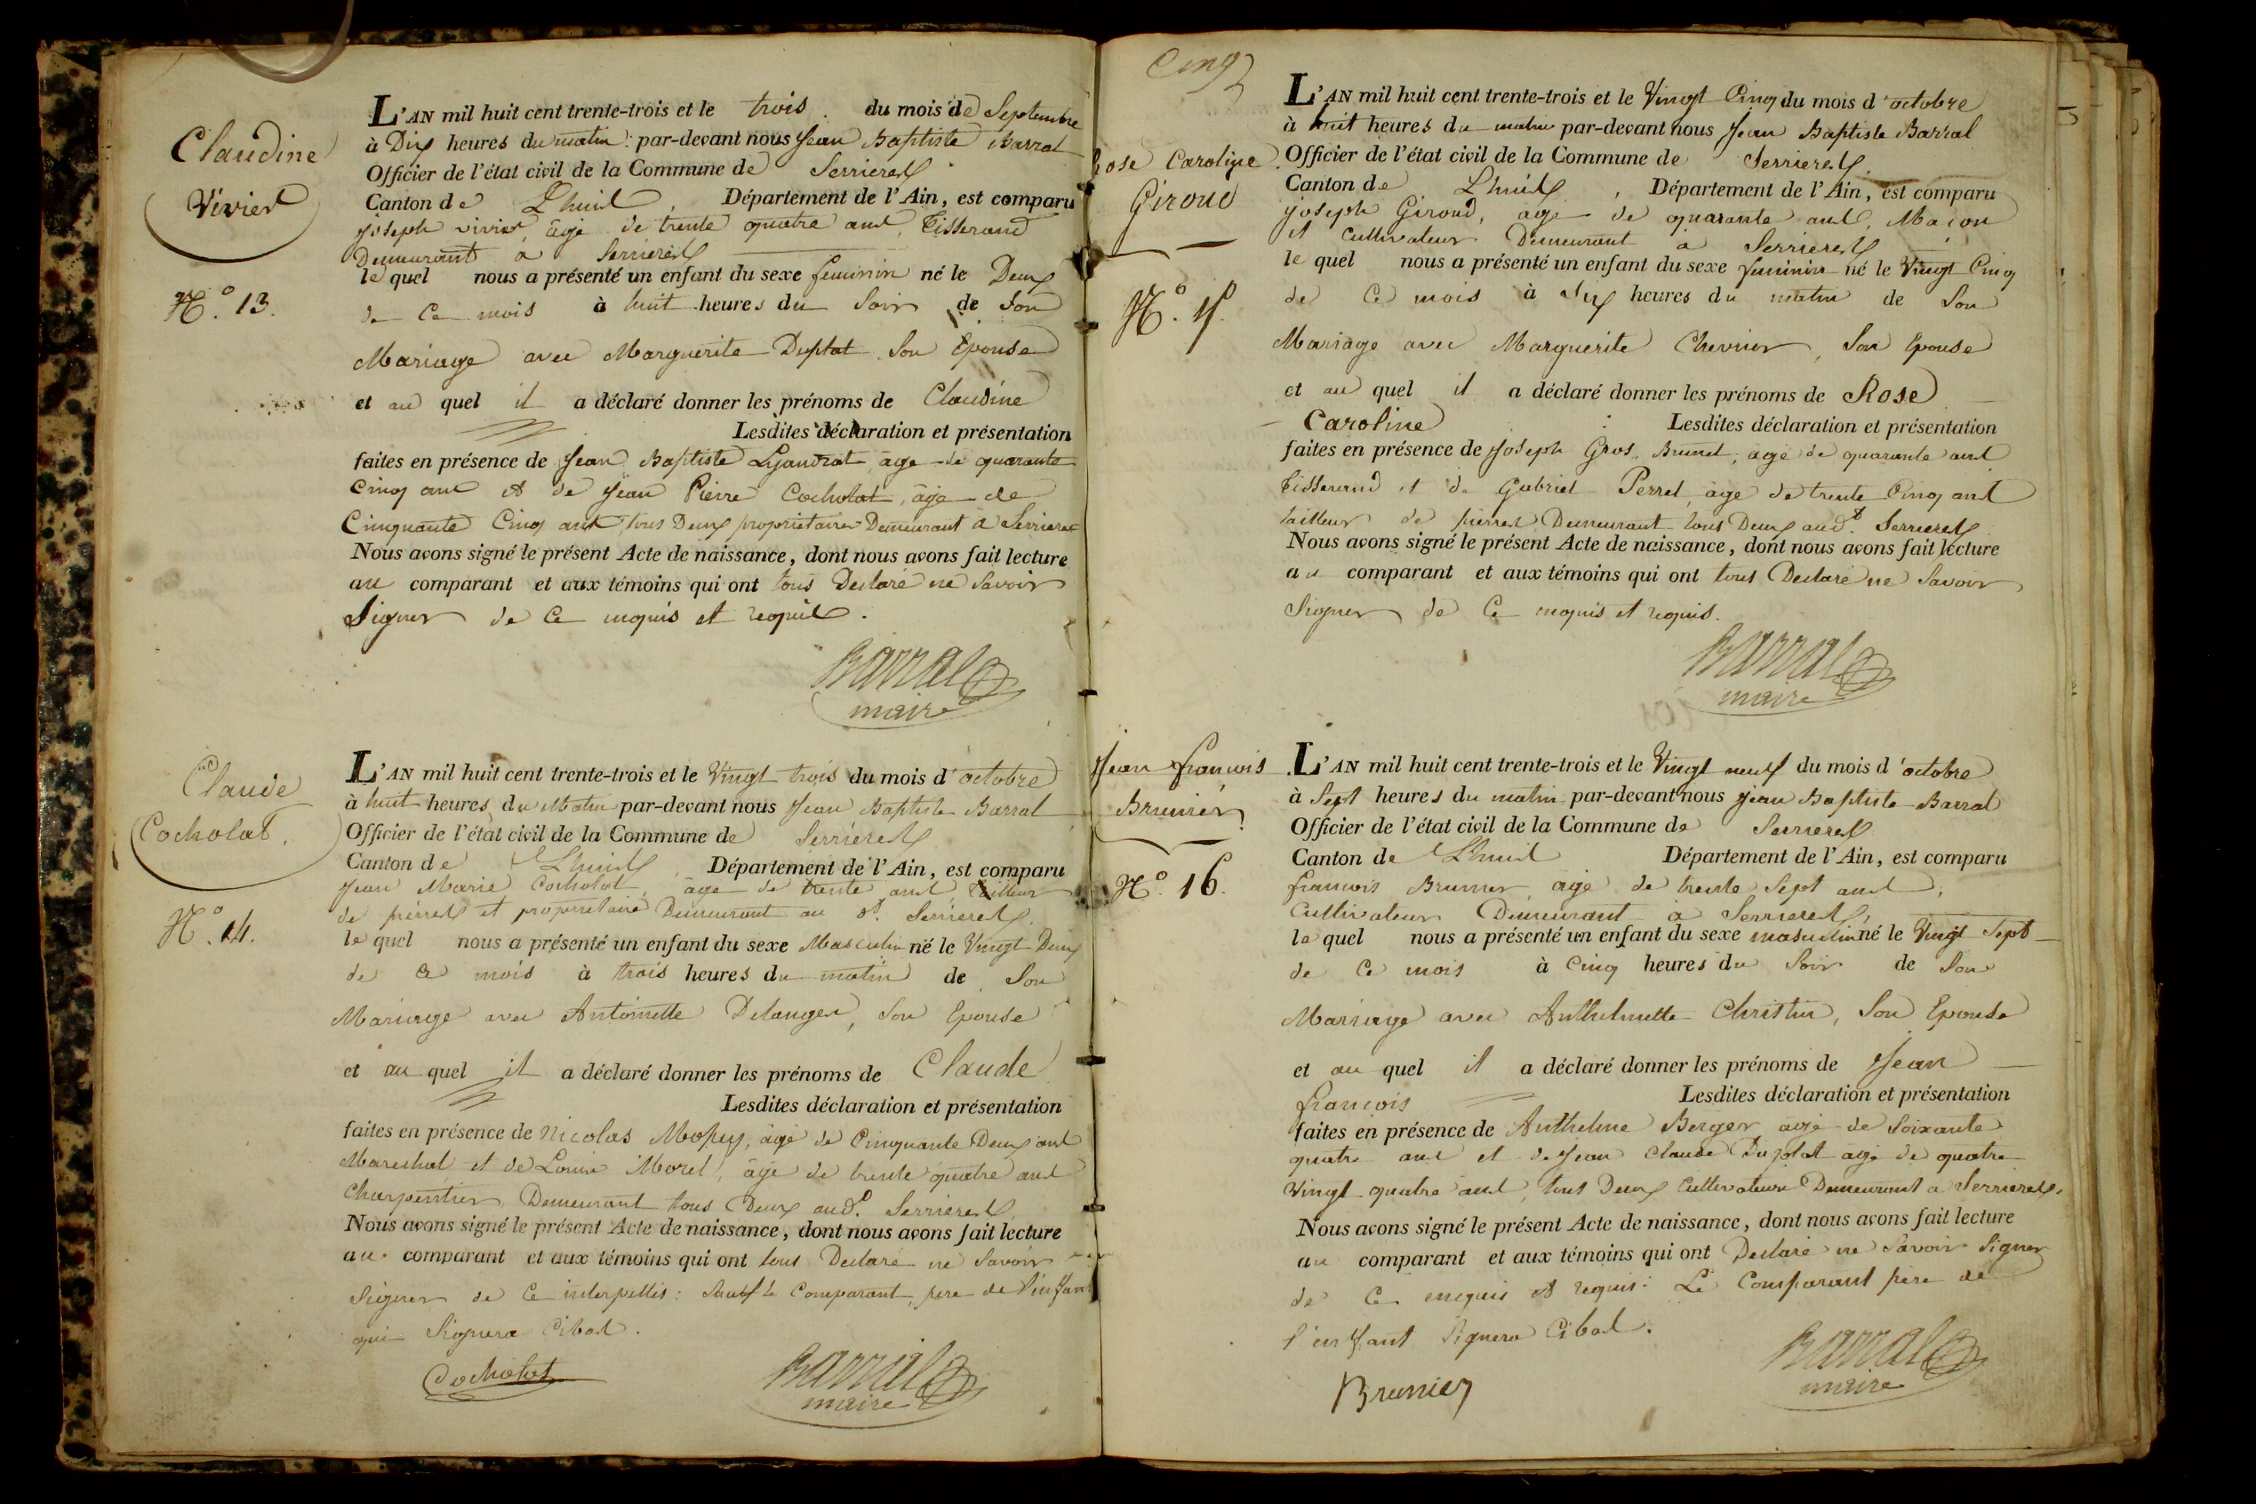 Claudine
Vivier
N.° 13.
L'AN mil huit cent trente-trois et le trois du mois de Septembre
à Dix heures du matin par-devant nous Jean Baptiste Barral
Officier de l'état civil de la Commune de Serrieres
Canton de Lhuis, Département de l'Ain, est comparu
joseph vivier âgé de trente quatre ans, Tisserand
Demeurant à Serrieres
le quel nous a présenté un enfant du sexe feminin né le Deux
de Ce mois à huit heures du Soir de Son
Mariage avec Marguerite Duplat Son Epouse
et au quel il a déclaré donner les prénoms de Claudine
Lesdites déclaration et présentation
faites en présence de Jean Baptiste âgé de quarante
Cinq ans et de Jean Pierre Cocholat, âgé de
Cinquante Cinq ans tous Deux proprietaires Demeurant à Serrieres
Nous avons signé le présent Acte de naissance, dont nous avons fait lecture
au comparant et aux témoins qui ont tous Declaré ne Savoir
Signer de Ce enquis et requis.
Barral
maire
Claude
Cocholat.
N.° 14.
L'AN mil huit cent trente-trois et le Vingt trois du mois d'octobre
à huit heures du Matin par-devant nous Jean Baptiste Barral
Officier de l'état civil de la Commune de Serrieres
Canton de Lhuis, Département de l'Ain, est comparu
Jean Marie Cocholat, âgé de trente ans, tailleur
de pierres et proprietaire Demeurant au dt. Serrieres
le quel nous a présenté un enfant du sexe Masculin né le Vingt Deux
de ce mois à trois heures du matin de Son
Mariage avec Antoinette Delanger, Son Epouse
et au quel il a déclaré donner les prénoms de Claude
Lesdites déclaration et présentation
faites en présence de Nicolas âgé de Cinquante Deux ans
Mareshal et de Louis Morel, âgé de trente quatre ans
Charpentier Demeurant tous Deux audt. Serrieres
Nous avons signé le présent Acte de naissance, dont nous avons fait lecture
au comparant et aux témoins qui ont tous Declaré ne Savoir
Signer de Ce interpellés: Sauf le Comparant, pere de l'enfant
qui Signera Cibas.
Cocholat
Barral
maire
Cinq
Rose Caroline
Giroud
N.° 15.
L'AN mil huit cent trente-trois et le Vingt Cinq du mois d'octobre
à huit heures du matin par-devant nous Jean Baptiste Barral
Officier de l'état civil de la Commune de Serrieres
Canton de Lhuis, Département de l'Ain, est comparu
joseph Giroud, âgé de quarante ans, Maçon
et Cultivateur Demeurant à Serrieres
le quel nous a présenté un enfant du sexe feminin né le Vingt Cinq
de Ce mois à Six heures du matin de Son
Mariage avec Marguerite Chevrier, Son Epouse
et au quel il a déclaré donner les prénoms de Rose
Caroline Lesdites déclaration et présentation
faites en présence de Joseph Gros Brunet, âgé de quarante ans
Tisserand et de Gabriel Perret, âgé de trente Cinq ans
tailleur de pierres Demeurant tous Deux audt. Serrieres
Nous avons signé le présent Acte de naissance, dont nous avons fait lecture
au comparant et aux témoins qui ont tous Declaré ne Savoir
Signer de Ce enquis et requis.
Barral
maire
Jean francois
Brunier
N.° 16.
L'AN mil huit cent trente-trois et le Vingt neuf du mois d'octobre
à Sept heures du matin par-devant nous Jean Baptiste Barral
Officier de l'état civil de la Commune de Serrieres
Canton de Lhuis Département de l'Ain, est comparu
francois Brunier âgé de trente Sept ans,
Cultivateur Demeurant à Serrieres,
le quel nous a présenté un enfant du sexe masculin né le Vingt Sept
de Ce mois à Cinq heures du Soir de Son
Mariage avec Anthelmette Christin, Son Epouse
et au quel il a déclaré donner les prénoms de Jean
francois Lesdites déclaration et présentation
faites en présence de Anthelme Berger âgé de Soixante
quatre ans et de Jean Claude Duplat âgé de quatre
Vingt quatre ans, tous Deux Cultivateurs Demeurant a Serrieres.
Nous avons signé le présent Acte de naissance, dont nous avons fait lecture
au comparant et aux témoins qui ont Declaré ne Savoir Signer
de Ce enquis et requis: Le Comparant pere de
l'enfant Signera Cibas.
Brunier
Barral
maire